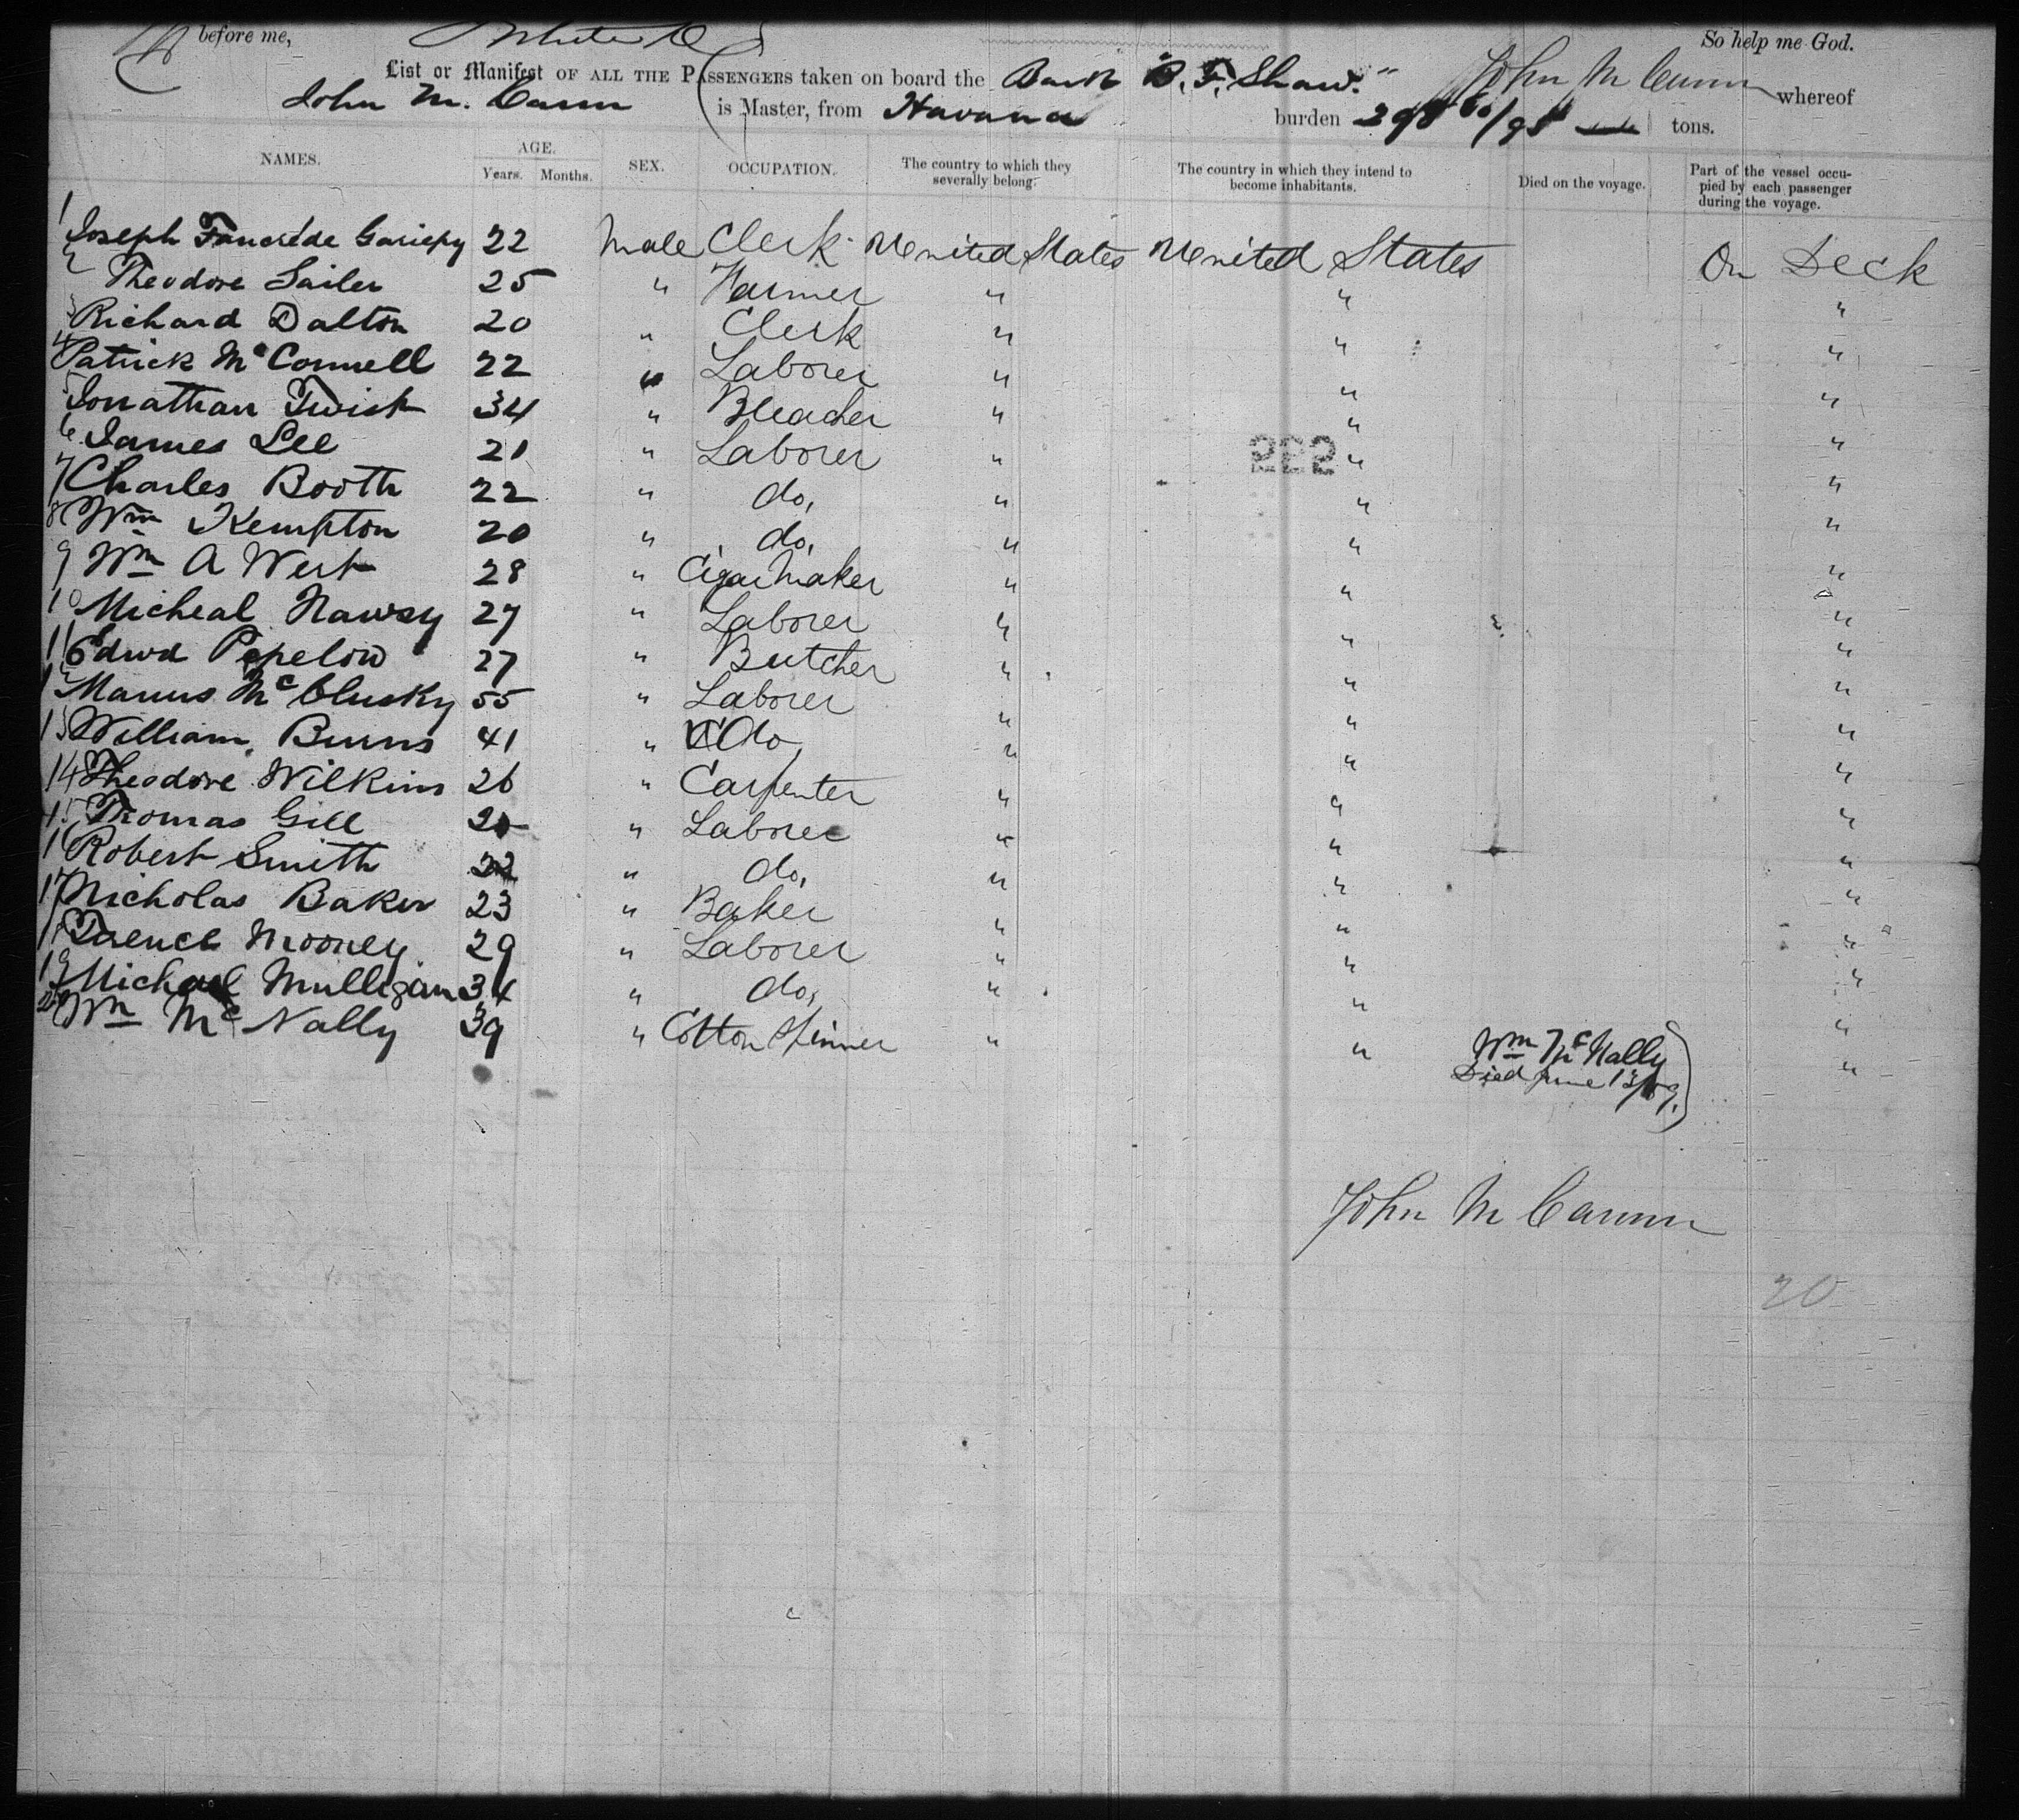 before me,
So help me God.
List or Manifest OF ALL THE PASSENGERS taken on board the Bark "B. F. Shaw." whereof
John M. Cann is Master, from Havana burden 298 60/95 tons.
NAMES. AGE. Years. Months. SEX. OCCUPATION. The country to which they severally belong. The country in which they intend to become inhabitants. Died on the voyage. Part of the vessel occupied by each passenger during the voyage.
1 Joseph Tancréde Gariepy 22 Male Clerk United States United States On Deck
2 Theodore Sailer 25 " Farmer " " "
3 Richard Dalton 20 " Clerk " " "
4 Patrick McConnell 22 " Laborer " " "
5 Jonathan Twist 34 " Bleacher " " "
6 James Lee 21 " Laborer " " "
7 Charles Booth 22 " do. " " "
8 Wm Kempton 20 " do. " " "
9 Wm A West 28 " Cigar Maker " " "
10 Micheal Nawsy 27 " Laborer " " "
11 Edwd Popelow 27 " Butcher " " "
12 Manus McClusky 55 " Laborer " " "
13 William Burns 41 " do " " "
14 Theodore Wilkins 26 " Carpenter " " "
15 Thomas Gill " Laborer " " "
16 Robert Smith 22 " do. " " "
17 Nicholas Baker 23 " Baker " " "
18 Mooney 29 " Laborer " " "
19 Michael Mulligan 34 " do. " " "
20 Wm McNally 39 " Cotton Spinner " " Wm McNally "
Died June 13/69.
John M Cann
20